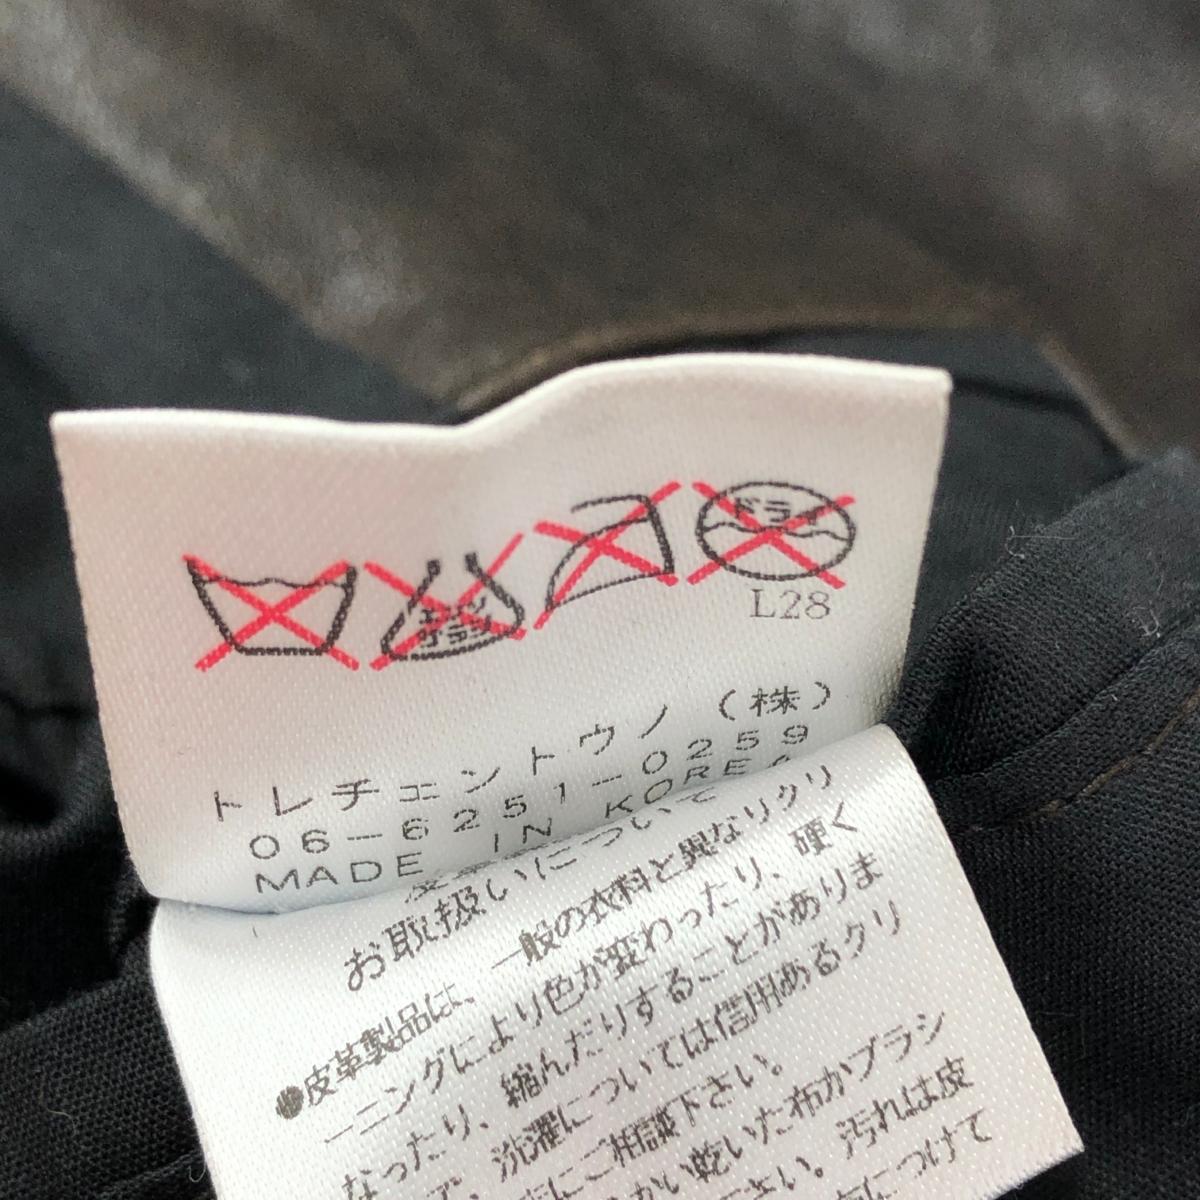 エンソ
サラシ
ドライ
L28
トレチェントウノ（株）
06-6251-0259
MADE IN KOREA
皮革
について
お取扱いについて
●皮革製品は、一般の衣料と異なりクリ
ーニングにより色が変わったり、硬く
なったり、縮んだりすることがありま
洗濯については信用あるクリ
にご相談下さい。
かい乾いた布かブラシ
さい。汚れは皮
につけて